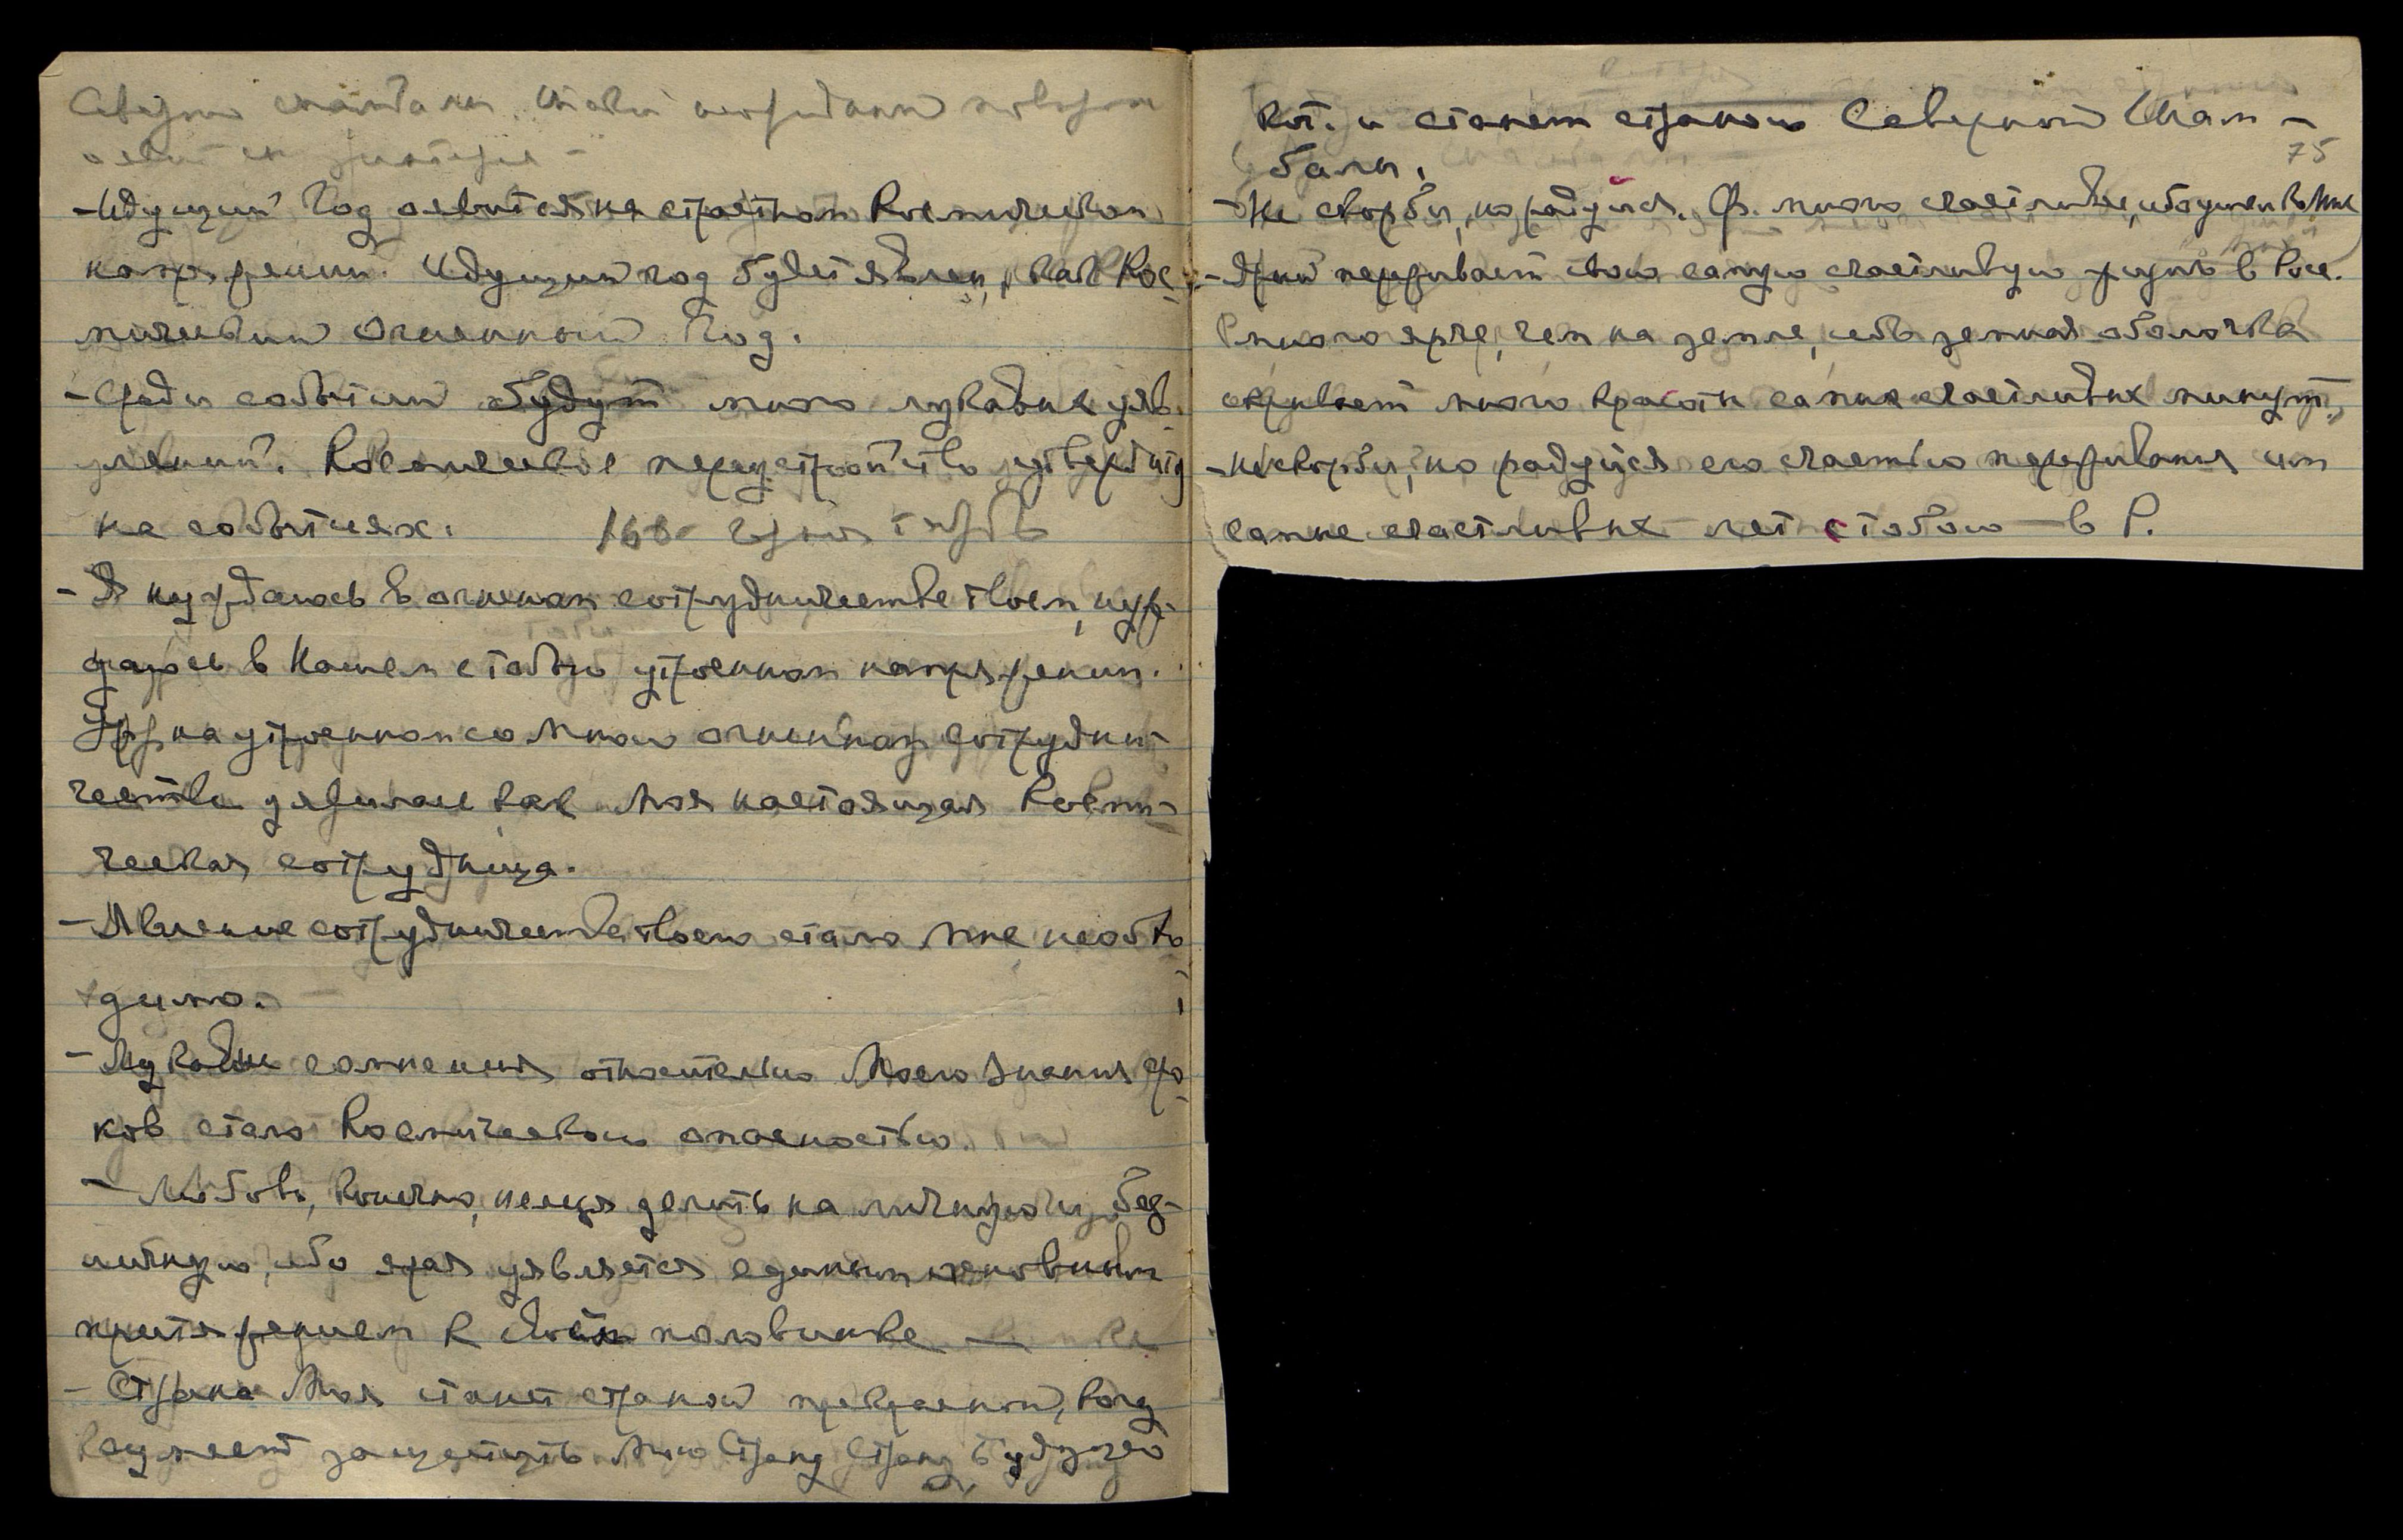 - Идущий Год явится на страстном Космическом
напряжении. Идущий год будет явлен, как Кос-
мический Огненный Год.
- Среди событий будут много лукавых уяв-
лений. Космическое переустройство утвержд
на событиях.
- Я нуждаюсь в огненном сотрудничестве твоем, нуж-
даюсь в Нашем с тобою утроенном напряжении.
на утроенном со Мною огненном сотрудни-
честве как Моя настоящая Косми-
ческая сотрудница.
- Явление сотрудничества твоего стало Мне необхо
димо.
- Лукавые сомнения относительно Моего Знания сро-
ков стало Космическою опасностью.
- Любовь, конечно, нельзя делить на личную и без-
личную, ибо ярая уявляется единым основным
притяжением к своей половинке —
- Страна Моя станет страной прекрасной, когд
сумеет защитить Мою Страну Страну будущего
кот. и станет страною Северной Шам-
75
балы.
- Не скорби, но радуйся. Ф. много счастливее, ибо
- Друг переживает свою самую счастливую жизнь в Росс.
много ярче, чем на земле, ибо земная оболочка
скрывает много красоты самых счастливых минут.
- Не скорби, но радуйся его счастью переживания им
самых счастливых лет с тобою — в Р.